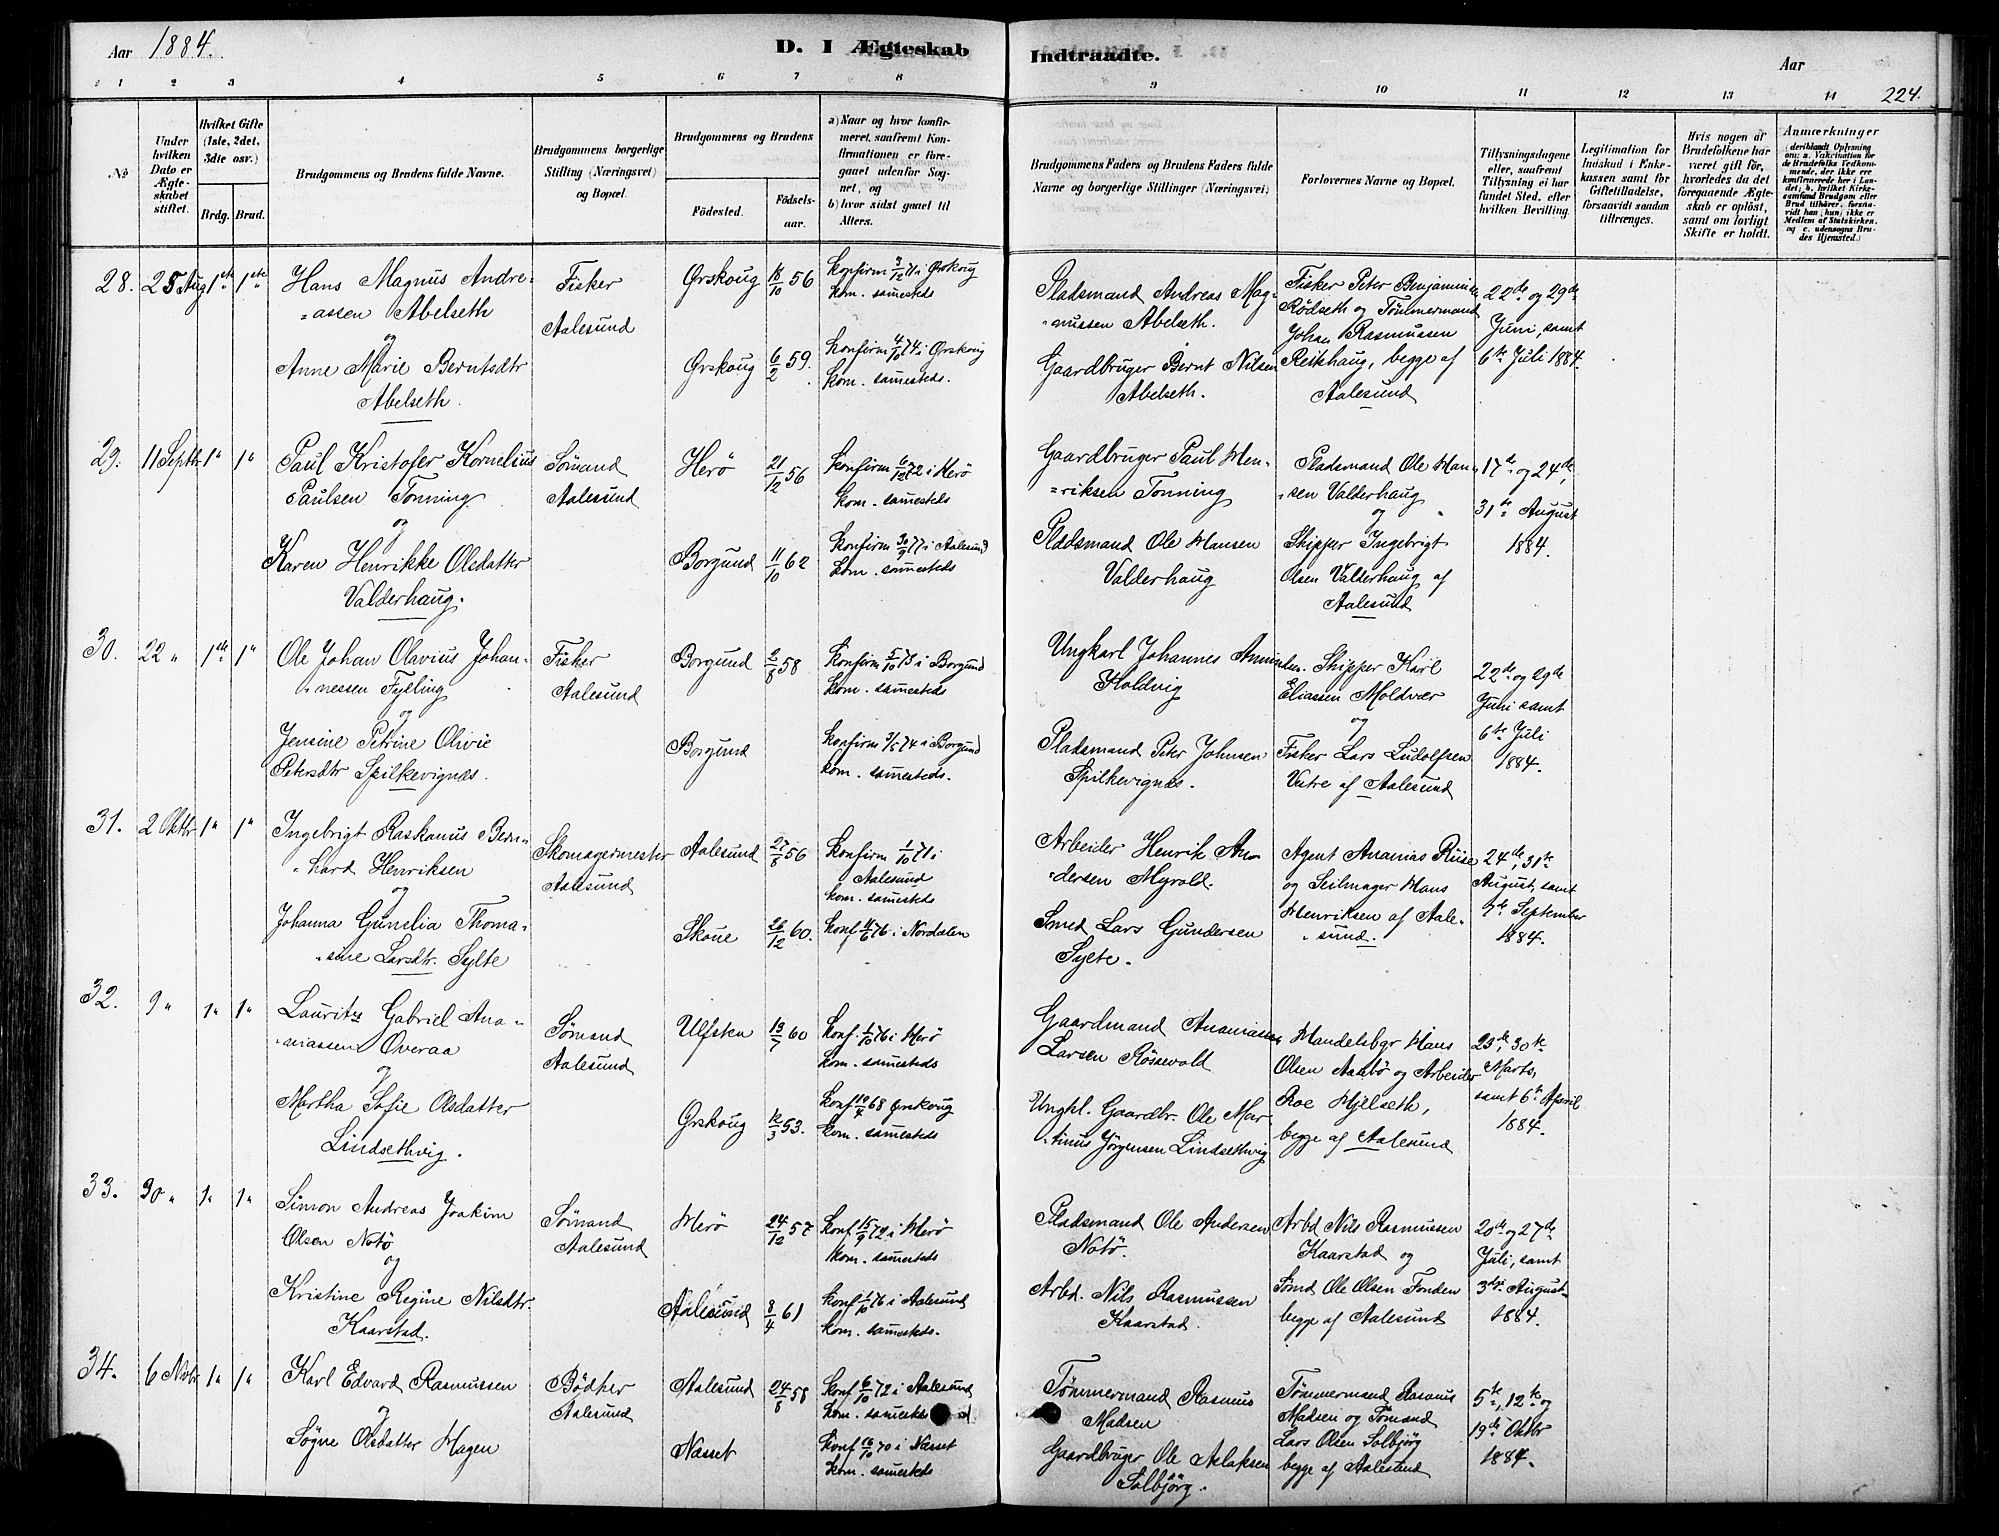 Aar 1884.
D. I Ægteskab
Indtraadte.
Aar
224.
1 2 3 4 5 6 7 8 9 10 11 12 13 14
No
Under hvilken Dato er Ægteskabet stiftet.
Hvilket Gifte (1ste, 2det, 3die osv.)
Brdg. Brud.
Brudgommens og Brudens fulde Navne.
Brudgommens borgerlige Stilling (Næringsvei) og Bopæl.
Brudgommens og Brudens
Fødested.
Fødselsaar.
a) Naar og hvor konfirmeret, saafremt Konfirmationen er foregaaet udenfor Sognet, og
b) hvor sidst gaaet til Alters.
Brudgommens Faders og Brudens Faders fulde Navne og borgerlige Stillinger (Næringsvei)
Forlovernes Navne og Bopæl.
Tillysningsdagene eller, saafremt Tillysning ei har fundet Sted, efter hvilken Bevilling.
Legitimation for Indskud i Enkekassen samt for Giftetilladelse, forsaavidt saadan tiltrænges.
Hvis nogen af Brudefolkene har været gift før, hvorledes da det foregaaende Ægteskab er opløst, samt om lovligt Skifte er holdt.
Anmærkninger (deriblandt Oplysning om: a. Vakcination for de Brudefolks Vedkommende, der ikke ere konfirmerede her i Landet; b. hvilket Kirkesamfund Brudgom eller Brud tilhører, forsaavidt han (hun) ikke er Medlem af Statskirken, og c. udensogns Brudes Hjemsted.)
28. 25 Aug 1ste 1ste
Hans Magnus Andre-
assen Abelseth
og
Anne Marie Berntsdtr
Abelseth.
Fisker
Aalesund
Ørskoug 18/10 56
Ørskoug 6/2 59.
Konfirm 3/12 71 i Ørskoug
kom. samesteds
Konfirm 4/10 74 i Ørskoug
kom. samesteds.
Pladsmand Andreas Mag-
nussen Abelseth.
Gaardbruger Bernt Nilsen
Abelseth.
Fisker Peter Benjaminsen
Rödseth og Tömmermand
Johan Rasmussen
Reithaug, begge af
Aalesund
22de og 29de
Juni, samt
6te Juli 1884.
29. 11 Septbr 1" 1"
Paul Kristofer Kornelius
Paulsen Tonning
og
Karen Henrikke Olsdatter
Valderhaug.
Sömand
Aalesund
Herö 21/12 56
Borgund 11/10 62
Konfirm 6/12 72 i Herö
kom. samesteds
Konfirm 30/9 77 i Aalesund
kom. samesteds
Gaardbruger Paul Hen-
riksen Tonning
Pladsmand Ole Hansen
Valderhaug
Pladsmand Ole Han-
sen Valderhaug
og
Skipper Ingebrigt
Olsen Valderhaug af
Aalesund
17de og 24de,
31te August
1884.
30. 22 " 1ste 1"
Ole Johan Olavius Johan-
nessen Fylling
og
Jensine Petrine Olivie
Petersdtr Spilkevignæs.
Fisker
Aalesund
Borgund 2/8 58
Borgund
Konfirm 5/10 73 i Borgund
kom. samesteds
Konfirm 3/5 74 i Borgund
kom. samesteds.
Ungkarl Johannes
Holdvig
Pladsmand Peter Johnsen
Spilkevignæs.
Skipper Karl
Eliassen Moldvær
og
Fisker Lars Ludolfsen
Vestre af Aalesund
22de og 29de
Juni samt
6te Juli
1884.
31. 2 Oktbr 1" 1"
Ingebrigt Raskanus Bern-
hard Henriksen
og
Johanna Gunelia Thoma-
sine Larsdtr. Sylte
Skomagermester
Aalesund
Aalesund 27/8 56
Skoue 26/12 60.
Konfirm 1/10 71 i
Aalesund
kom. samesteds
Konf 4/6 76 i Nordalen
Arbeider Henrik An-
dersen Myrold.
Smed Lars Gundersen
Sylte.
Agent Ananias Riise
og Seilmager Hans
Henriksen af Aale-
sund.
24de, 31te
August, samt
7de September
1884.
32. 9 " 1" 1"
Lauritz Gabriel Ana-
niassen Overaa
og
Martha Sofie Olsdatter
Lindsethvig.
Sömand
Aalesund
Ulfsten 13/7 60
Ørskoug 12/3 53.
Konf. 1/10 76 i Herö
kom. samesteds
Konf 19/4 68 Ørskoug
kom. samesteds
Gaardmand Ananias
Larsen Rössevold
Ungkl. Gaardbr. Ole Mar-
tinus Jörgensen Lindsethvig
Handelsbgr Hans
Olsen Aabö og Arbeider
Roe Hjelseth,
begge af Aalesund
23de, 30te
Marts,
samt 6te April
1884.
33. 30 " 1" 1"
Simon Andreas Joakim
Olsen Notö
og
Kristine Regine Nilsdtr.
Kaarstad.
Sömand
Aalesund
Herö 24/12 57
Aalesund 8/4 61
Konf 15/9 72 i Herö
kom. samesteds
Konf 1/10 76 i Aalesund
kom. samesteds.
Pladsmand Ole Andersen
Notö.
Arbd. Nils Rasmussen
Kaarstad.
Arbd Nils Rasmussen
Kaarstad og
Sømd Ole Olsen Fonden
begge af Aalesund
20de og 27de
Juli, samt
3die August
1884.
34. 6 Novbr 1" 1"
Karl Edvard Rasmussen
og
Søgne Olsdatter Hagen
Bödker
Aalesund
Aalesund 24/8 58
Næsset
Konf 6/10 72 i Aalesund
kom. samesteds
Konf 16/10 70 i Næsset
kom. samesteds
Tömmermand Rasmus
Madsen
Gaardbruger Ole Aslaksen
Solbjörg.
Tömmermand Rasmus
Madsen og Sömand
Lars Olsen Solbjörg
begge af Aalesund
5te, 12te og
19de Oktbr
1884.